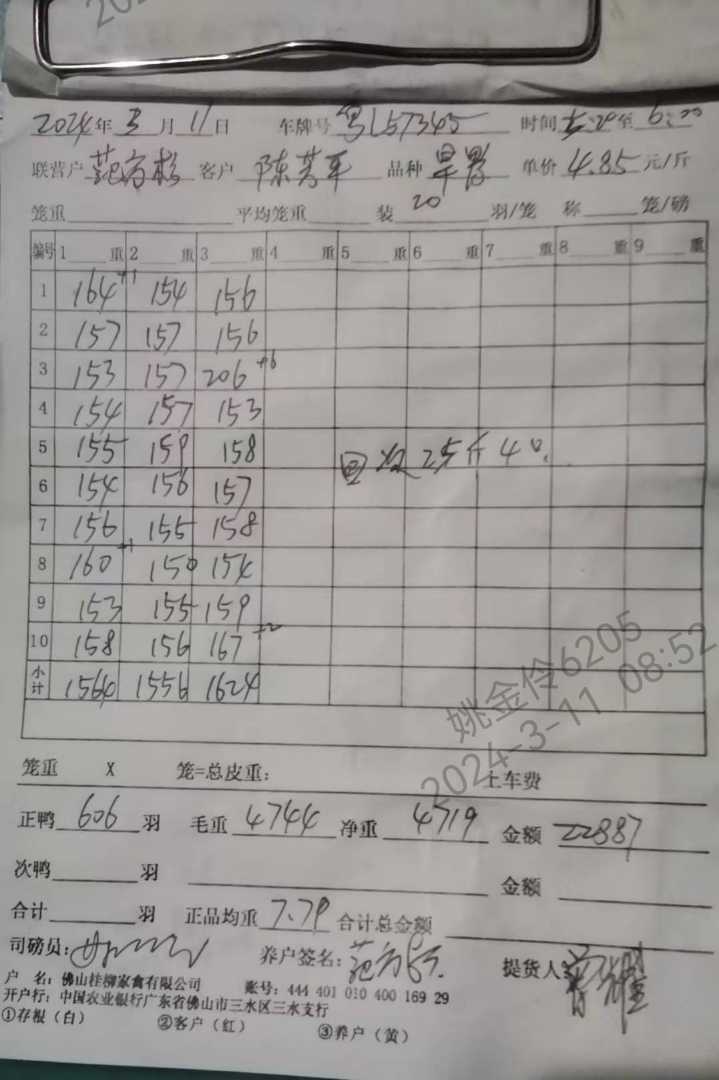 2024年3月11日 车牌号粤L57345 时间5:20至6:20
联营户 范 客户 陈芳平 品种 单价4.85元/斤
笼重 平均笼重 装20羽/笼 称 笼/磅
编号 1 重 2 重 3 重 4 重 5 重 6 重 7 重 8 重 9 重
1 164+1 154 156
2 157 157 156
3 153 157 206+6
4 154 157 153
5 155 159 158
6 154 156 157
7 156 155 158
8 160+1 150 154
9 153 155 159
10 158 156 167
小计 1564 1556 1624
25斤
姚金伶6205
2024-3-11 08:52
笼重 X 笼=总皮重: 上车费
正鸭606羽 毛重4744 净重4719 金额22887
次鸭 羽 金额
合计 羽 正品均重7.79 合计总金额
司磅员: 养户签名:范 提货人:
户 名:佛山桂柳家禽有限公司 账号:444 401 010 400 169 29
开户行:中国农业银行广东省佛山市三水区三水支行
①存根(白) ②客户(红) ③养户(黄)